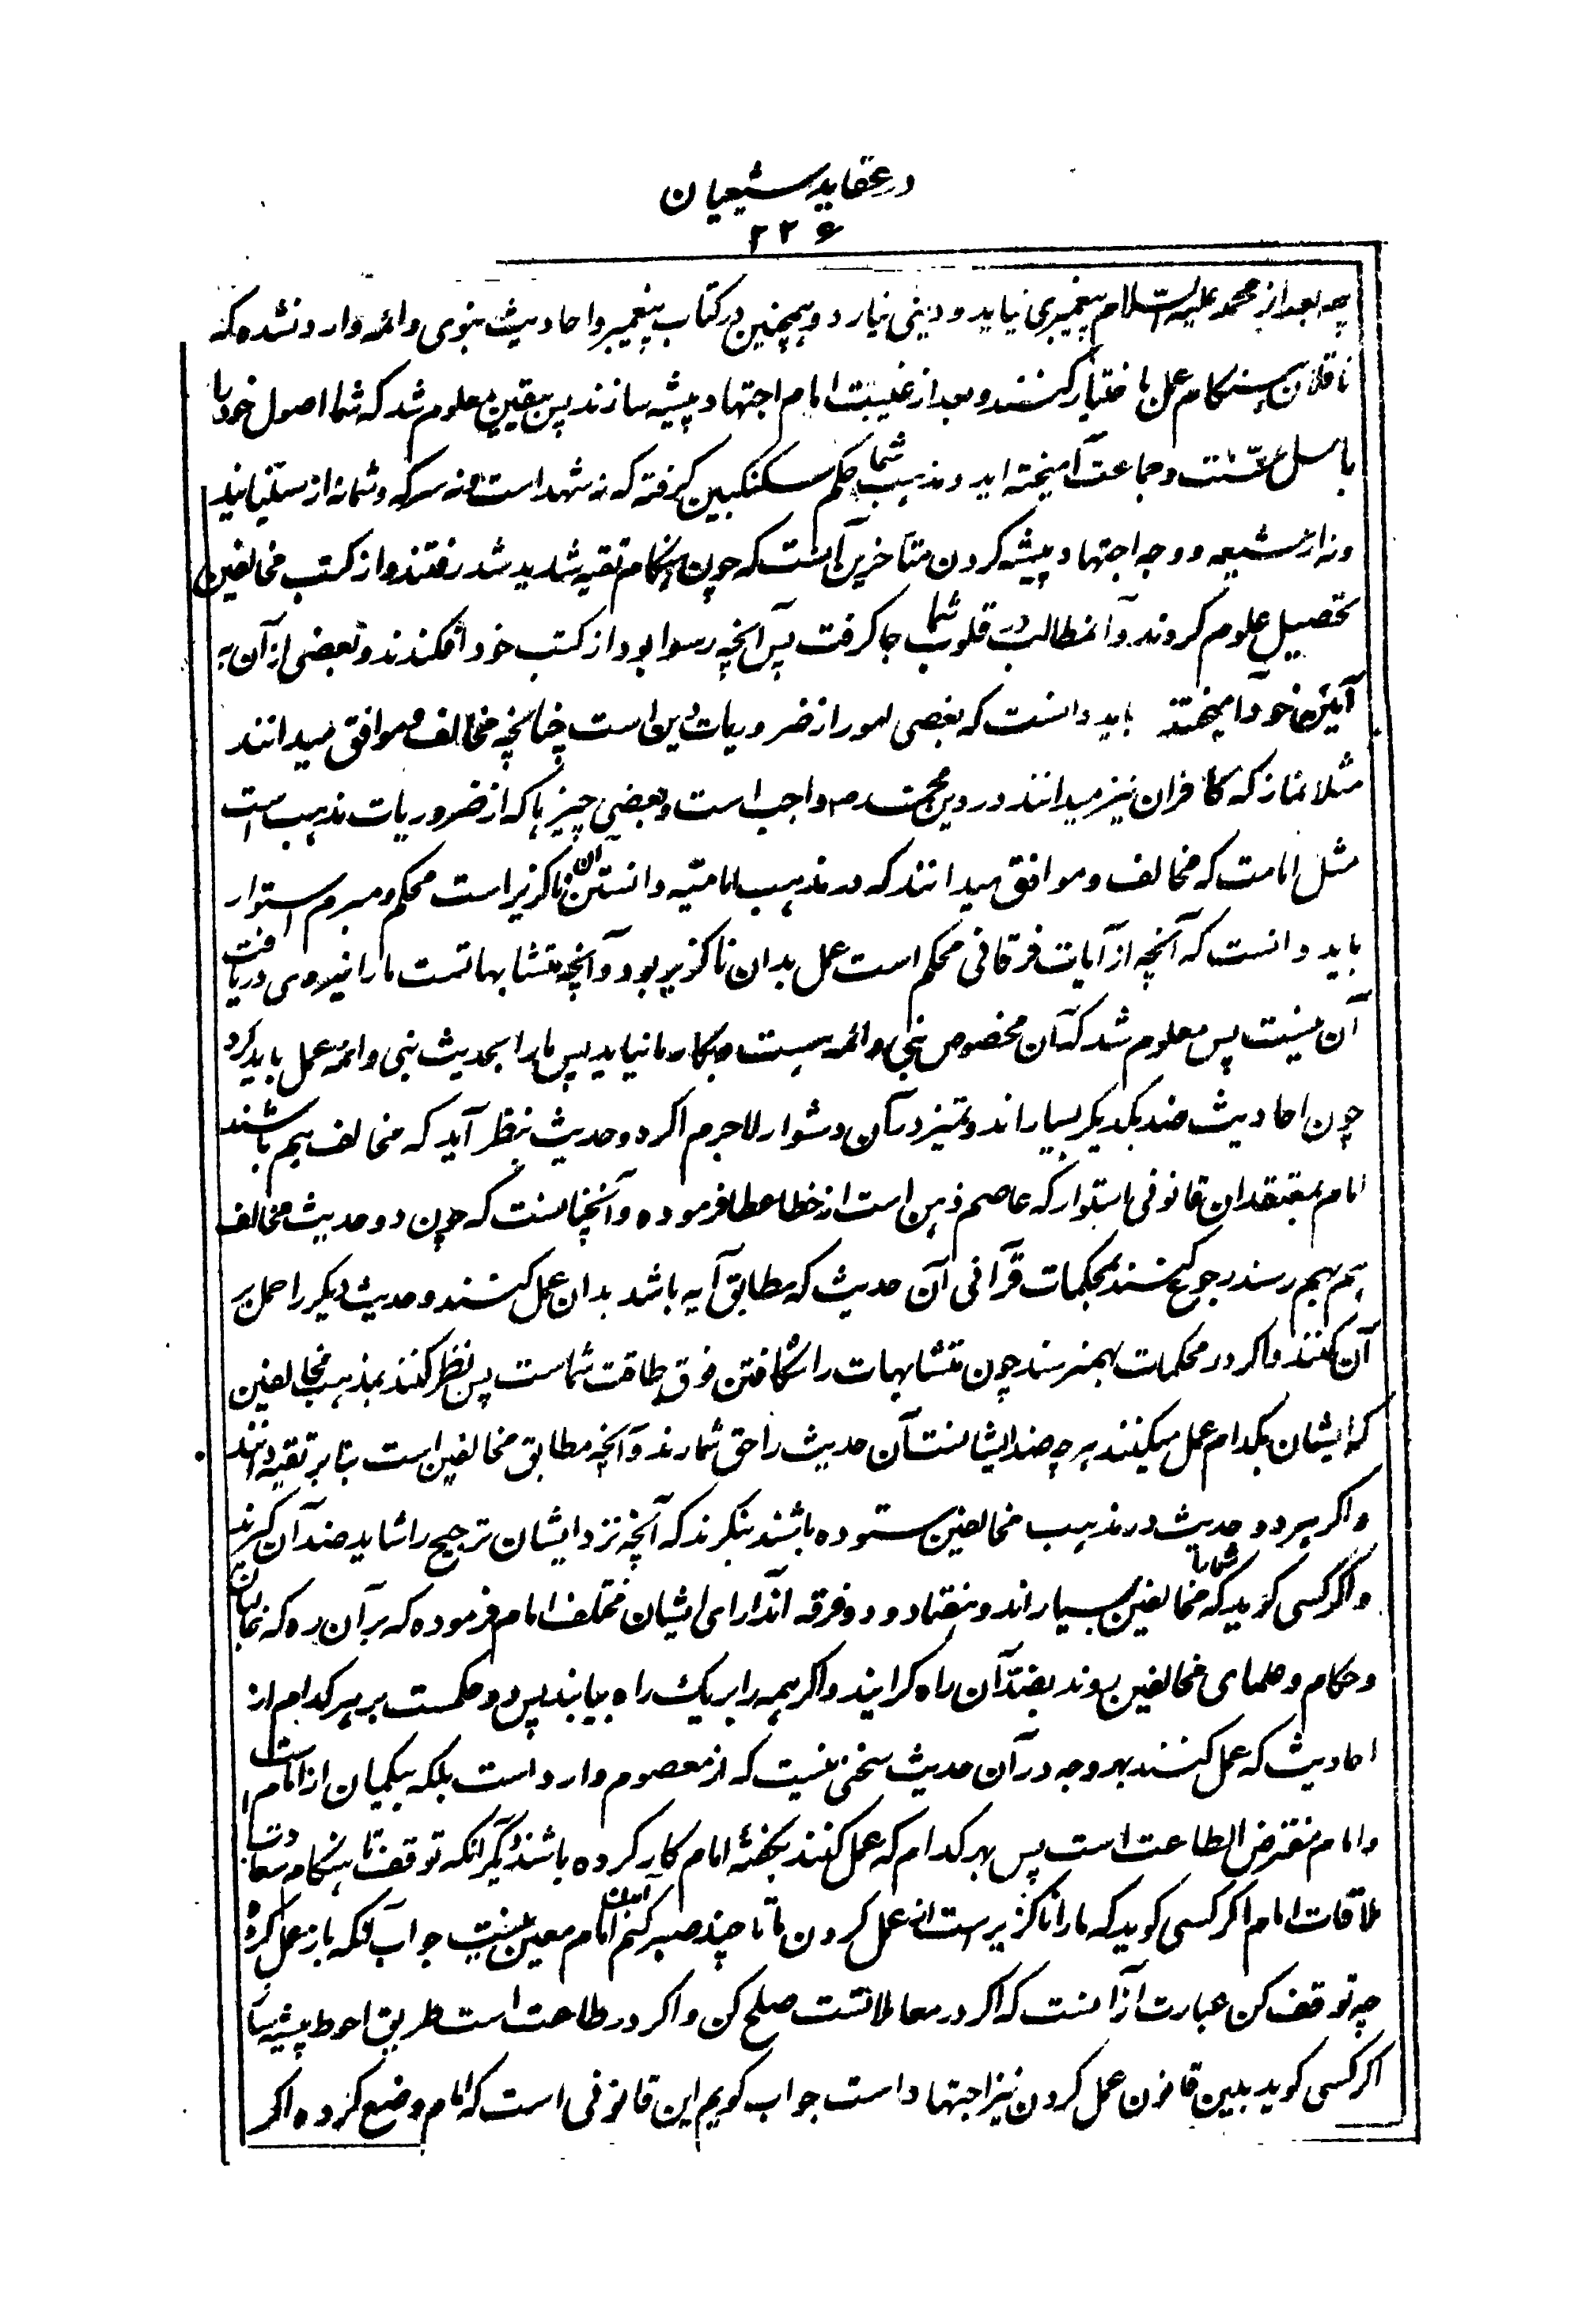 در عقاید شیعیان
۲۲۶
چه بعد از محمد علیه السلام پیغمبری نیاید و دینی نیارد و همچنین در کتاب پیغمبر و احادیث نبوی و ائمه وارد نشده که
ناقلان هنگام عمل باختیار کنند و بعد از غیبت امام اجتهاد پیشه سازند پس بیقین معلوم شد که شما اصول خود را
باصل سنت و جماعت آمیخته اید و مذهب شما حکم سکنکبین کرفته که نه شهد است و نه سرکه و شما نه از سنیانید
و نه از شیعه و وجه اجتهاد پیشه کردن متأخرین آنست که چون هنکام تقیه شدید شد رفتند و از کتب مخالفین
تحصیل علوم کردند و آنمطالب در قلوب شما جا کرفت پس آنچه رسوا بود از کتب خود افکندند و بعضی از آن به
آئین خود آمیختند باید دانست که بعضی امور از ضروریات دین است چنانچه مخالف و موافق میدانند
مثلا نماز که کافران نیز میدانند در دین محمد ص واجب است و بعضی چیزها که از ضروریات مذهب است
مثل امامت که مخالف و موافق میدانند که در مذهب امامیه دانستن آن ناکزیر است محکم و مبرم استوار
باید دانست که آنچه از آیات فرقانی محکم است عمل بدان ناکزیر بود و آنچه متشابهاتست ما را نیروی دریافت
آن نیست پس معلوم شد که آن مخصوص نبی و ائمه هست و بکار ما نیاید پس ما را بحدیث نبی و ائمه عمل باید کرد
چون احادیث ضد یکدیکر بسیاراند و تمیز در آن دشوار لاجرم اکر دو حدیث بنظر آید که مخالف هم باشند
امام بمعتقدان قانونی استوار که عاصم ذهن است از خطا عطا فرموده و آنچنانست که چون دو حدیث مخالف
هم بهم رسند رجوع کنند بمحکمات قرآنی آن حدیث که مطابق آیه باشد بدان عمل کنند و حدیث دیکر را حمل بر
آن کنند و اکر در محکمات بهم نرسند چون متشابهات را شکافتن فوق طاقت شماست پس نظر کنند بمذهب مخالفین
که ایشان بکدام عمل میکنند هر چه ضد ایشانست آن حدیث را حق شمارند و آنچه مطابق مخالفین است بنابر تقیه دانند
و اکر هر دو حدیث در مذهب مخالفین ستوده باشند بنکرند که آنچه نزد ایشان ترجیح را شاید ضد آن کیرند
و اکر کسی کوید که مخالفین شما را بسیاراند و هفتاد و دو فرقه اند آرای ایشان مختلف امام فرموده که بر آن ره که
و حکام و علمای مخالفین روند بضد آن راه کرایند و اکر همه را بر یک راه بیابند پس دو حکمست بر هر کدام از
احادیث که عمل کنند بهر وجه در آن حدیث سخنی نیست که از معصوم وارد است بلکه بیکمان از امام است
و امام مفترض الطاعت است پس بهر کدام که عمل کنند بکفتهٔ امام کار کرده باشند دیگر آنکه توقف تا هنکام سعادت
ملاقات امام اکر کسی کوید که ما را ناکزیر است از عمل کردن ما تا چند صبر کنیم آمدن امام معین نیست جواب آنکه باز عمل کرده
چه توقف کن عبارت از آنست که اکر در معاملاتست صلح کن و اکر در طاعت است طریق احوط پیشه ساز
اکر کسی کوید بدین قانون عمل کردن نیز اجتهاد است جواب کویم این قانونی است که امام وضع کرده اکر